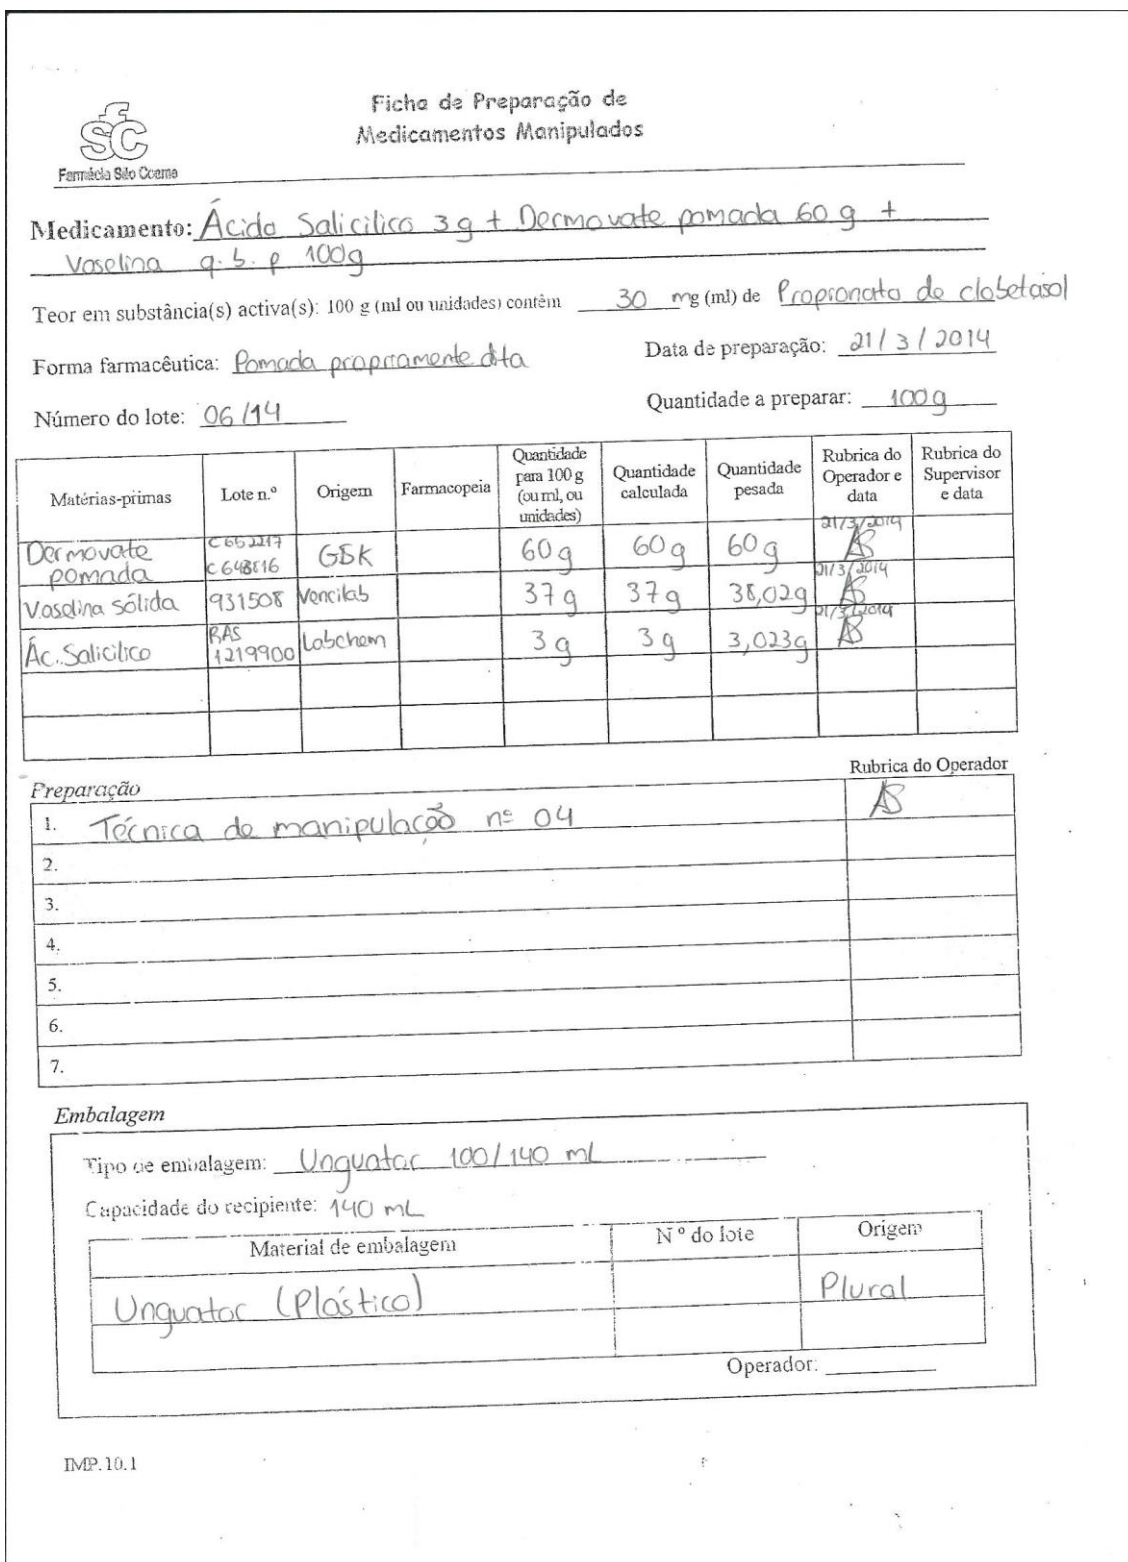 Ficha de Preparação de
Medicamentos Manipulados
sfc
Farmácia São Cosme
Medicamento: Ácido Salicilico 3 g + Dermovate pomada 60 g +
Vaselina q.b.p 100g
Teor em substância(s) activa(s): 100 g (ml ou unidades) contêm 30 mg (ml) de Propionato de clobetasol
Forma farmacêutica: Pomada propriamente dita Data de preparação: 21/3/2014
Número do lote: 06/14 Quantidade a preparar: 100g
Matérias-primas Lote n.º Origem Farmacopeia Quantidade para 100 g (ou ml, ou unidades) Quantidade calculada Quantidade pesada Rubrica do Operador e data Rubrica do Supervisor e data
Dermovate pomada C652217 C648816 GSK 60g 60g 60g 21/3/2014 AS
Vaselina sólida 931508 Vencilab 37g 37g 38,02g 21/3/2014 AS
Ác. Salicilico RAS 1219900 Labchem 3g 3g 3,023g 21/3/2014 AS
Preparação Rubrica do Operador
1. Técnica de manipulação nº 04 AS
2.
3.
4.
5.
6.
7.
Embalagem
Tipo de embalagem: Unguator 100/140 mL
Capacidade do recipiente: 140 mL
Material de embalagem N º do lote Origem
Unguator (Plástico) Plural
Operador:
IMP.10.1